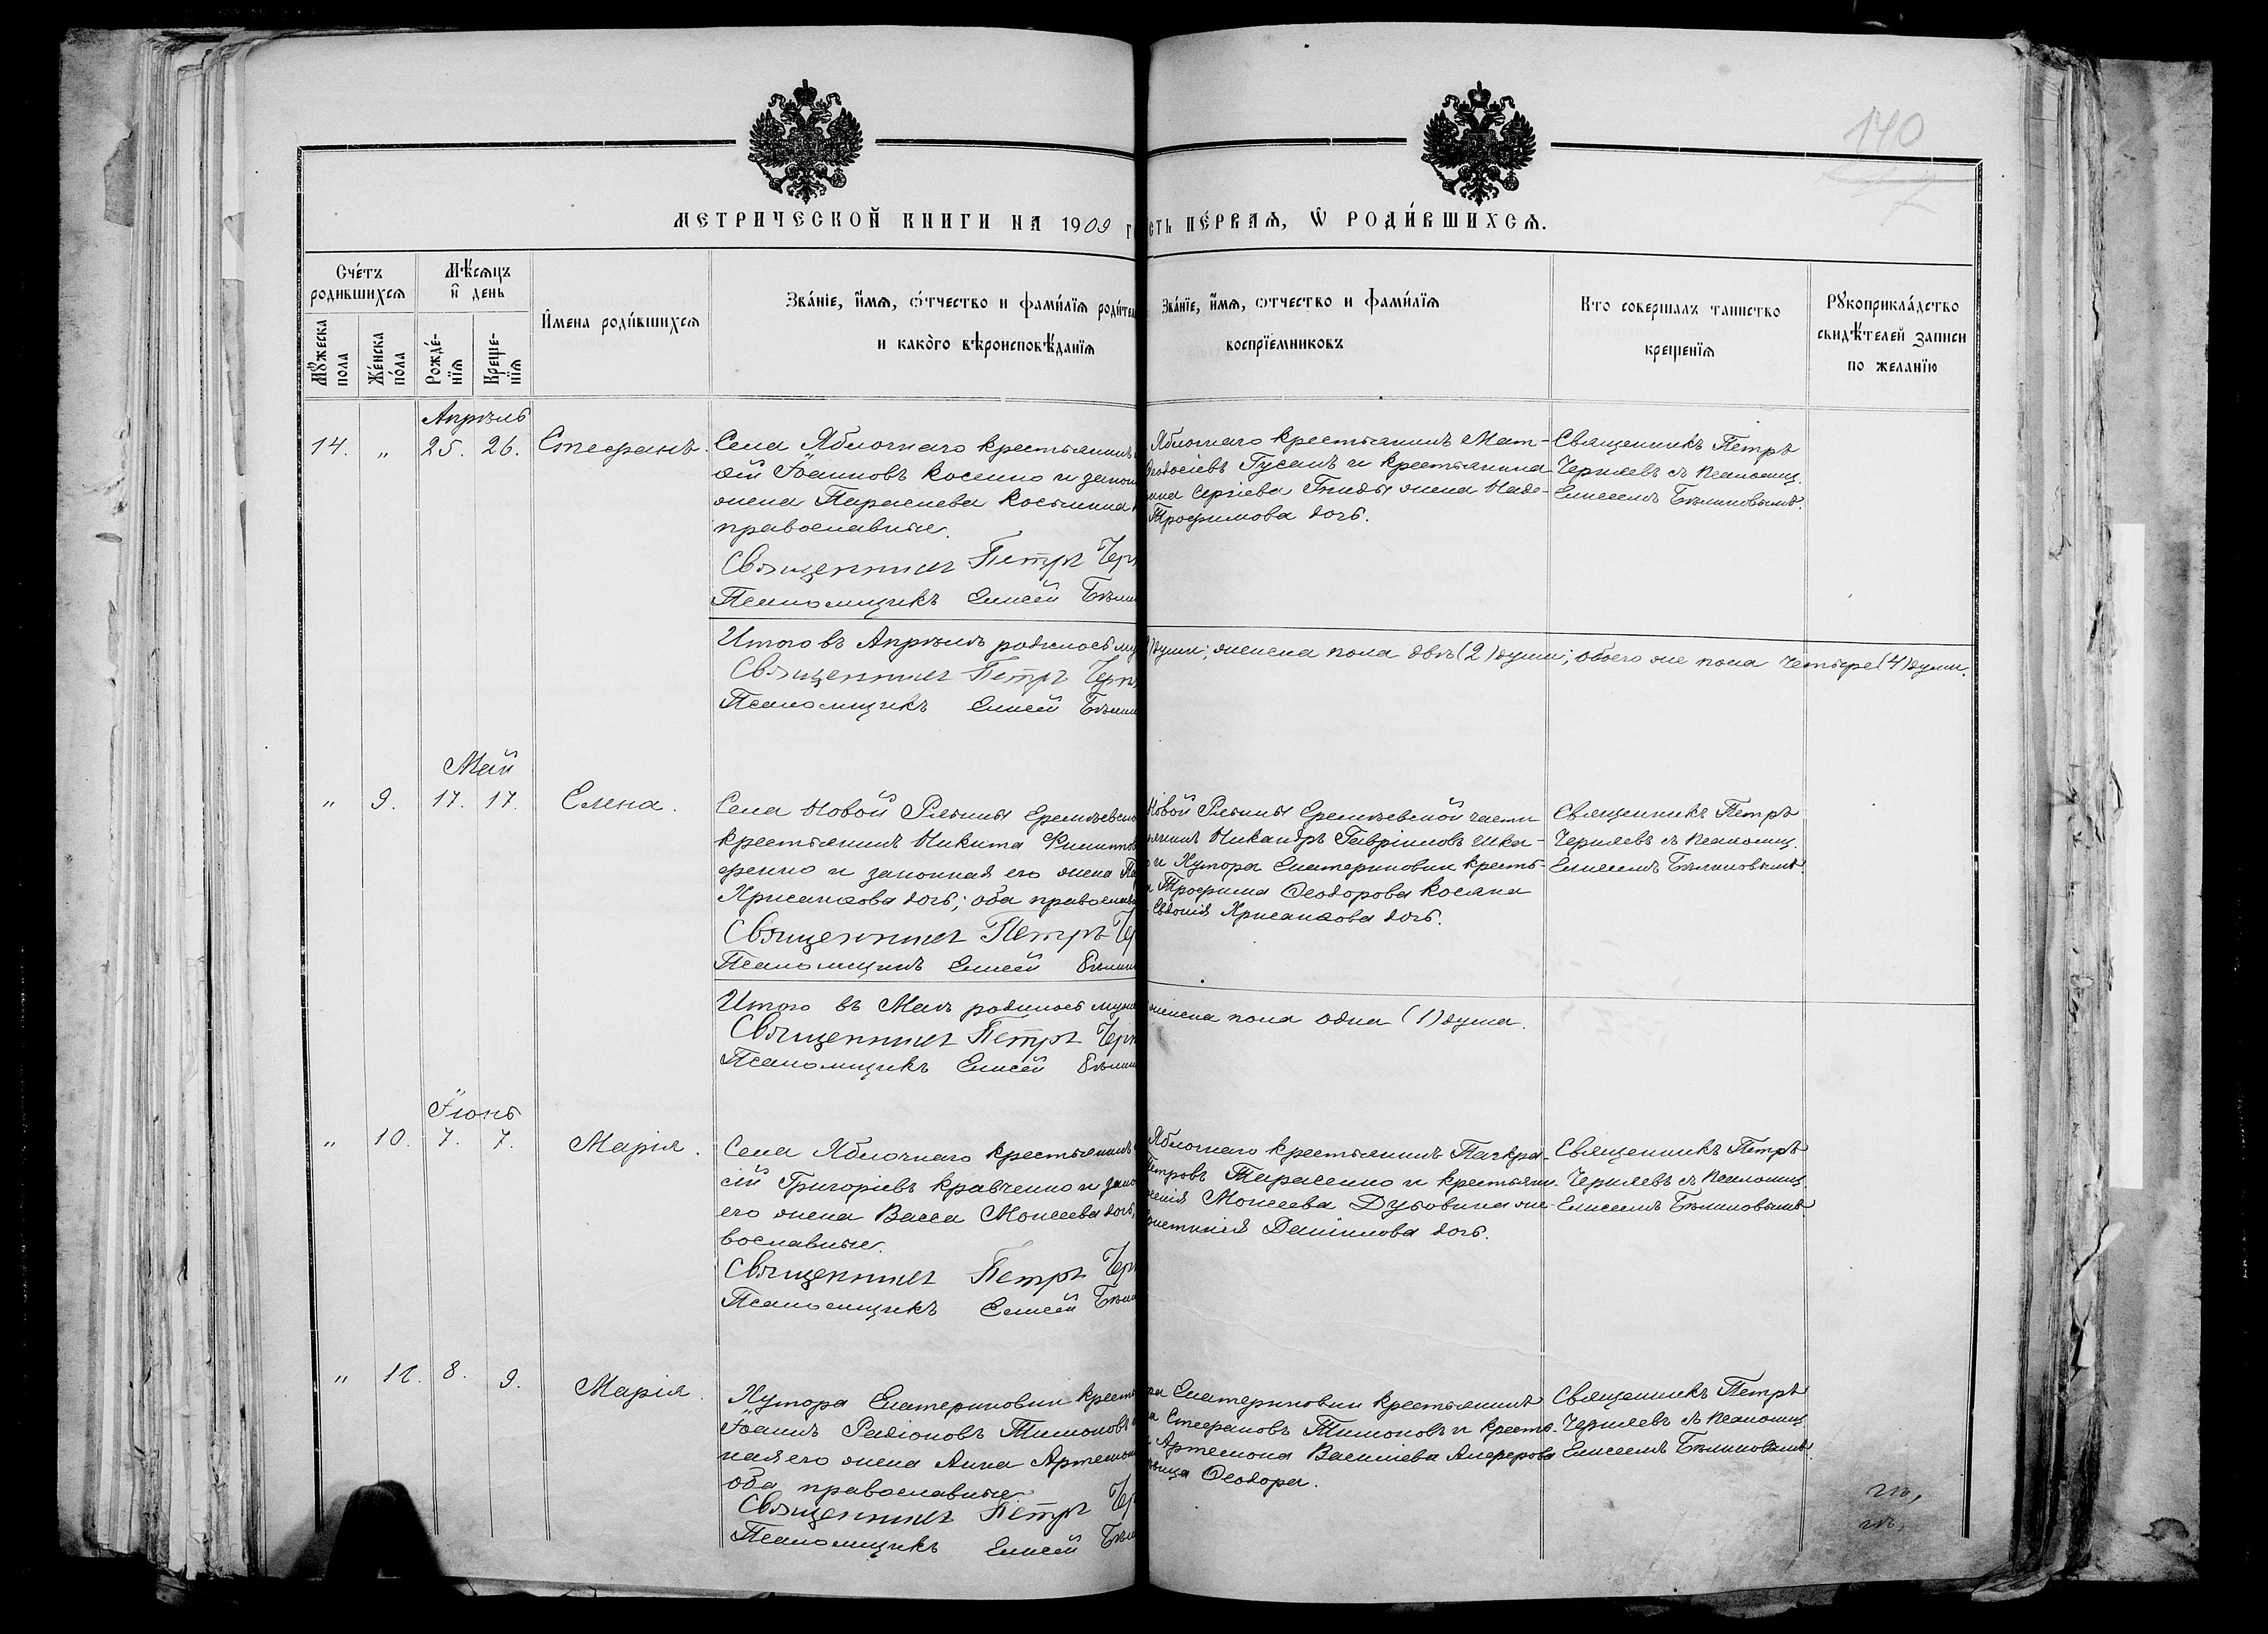 140
МЕТРИЧЕСКОЙ КНИГИ НА 1909 г
сть пе́рвая, ѿ роди́вшихся.
Сче́тъ родившихся
Мѣ́сяцъ и҆ день
И҆мена роди́вшихся
Зва́нїе, и҆́мя, ѻ҆́тчество и фами́лїя роди́тел
и како́го вѣроисповѣ́данїя
Зва́нїе, и҆́мя, ѻтчество и фами́лїя
воспрїемниковъ
Кто совершалъ таинство
крещенїя
Рꙋкоприкла́дство
свидѣ́телей записи
по желанїю
Мꙋжеска пола
Же́нска по́ла
Рожде́нїя
Креще́нїя
Апрѣль
14. „ 25. 26. Стефанъ.
Села Яблочнаго крестьянинъ
ѳій Іоанновъ Косенко и закон
жена Параскева Косьмина
православные.
Священникъ Петръ Чер
Псаломщикъ Елисей Бѣли
Яблочнаго крестьянинъ Мат-
Ѳеодосіевъ Гусакъ и крестьянина
Сергіева Гниды жена Наде-
Трофимова дочь.
Священникъ Петръ
Черняевъ съ псаломщ.
Елисеемъ Бѣликовымъ.
Итого въ Апрѣлѣ родилось му
души; женска пола двѣ (2) души; обоего же пола четыре (4) души.
Священникъ Петръ Черн
Псаломщикъ Елисей Бѣлик
Май
„ 9. 17. 17. Елена.
Села Новой Рябины Еремѣевско
крестьянинъ Никита Филиппов
фенко и законная его жена Па
Хрисанѳова дочь; оба православ
Священникъ Петръ Че
Псаломщикъ Елисей Бѣлик
Новой Рябины Еремѣевской части
Никандръ Гавріиловъ Шка-
и Хутора Екатериновки кресть-
Трофима Ѳеодорова Косяка
Евдокія Хрисанѳова дочь.
Священникъ Петръ
Черняевъ съ псаломщ.
Елисеемъ Бѣликовымъ.
Итого въ Маѣ родилось муж
женска пола одна (1) душа.
Священникъ Петръ Черн
Псаломщикъ Елисей Бѣлик
Іюнь
„ 10. 7. 7. Марія.
Села Яблочнаго крестьянинъ
сій Григоріевъ Кравченко и зако
его жена Васса Моисеева дочь,
вославные.
Священникъ Петръ Чер
Псаломщикъ Елисей Бѣли
Яблочнаго крестьянинъ Панкра-
Петровъ Тарасенко и крестьян-
Моисеева Дубовика же-
Даніилова дочь.
Священникъ Петръ
Черняевъ съ псаломщ.
Елисеемъ Бѣликовымъ
„ 11. 8. 9. Марія.
Хутора Екатериновки кресть
Іоаннъ Радіоновъ Тимоновъ
ная его жена Анна Артемон
оба православные.
Священникъ Петръ Че
Псаломщикъ Елисей Бѣли
ра Екатериновки крестьянинъ
Стефановъ Тимоновъ и кресть-
Артемона Василіева Алферова
Ѳеодора.
Священникъ Петръ
Черняевъ съ псаломщ
Елисеемъ Бѣликовымъ.